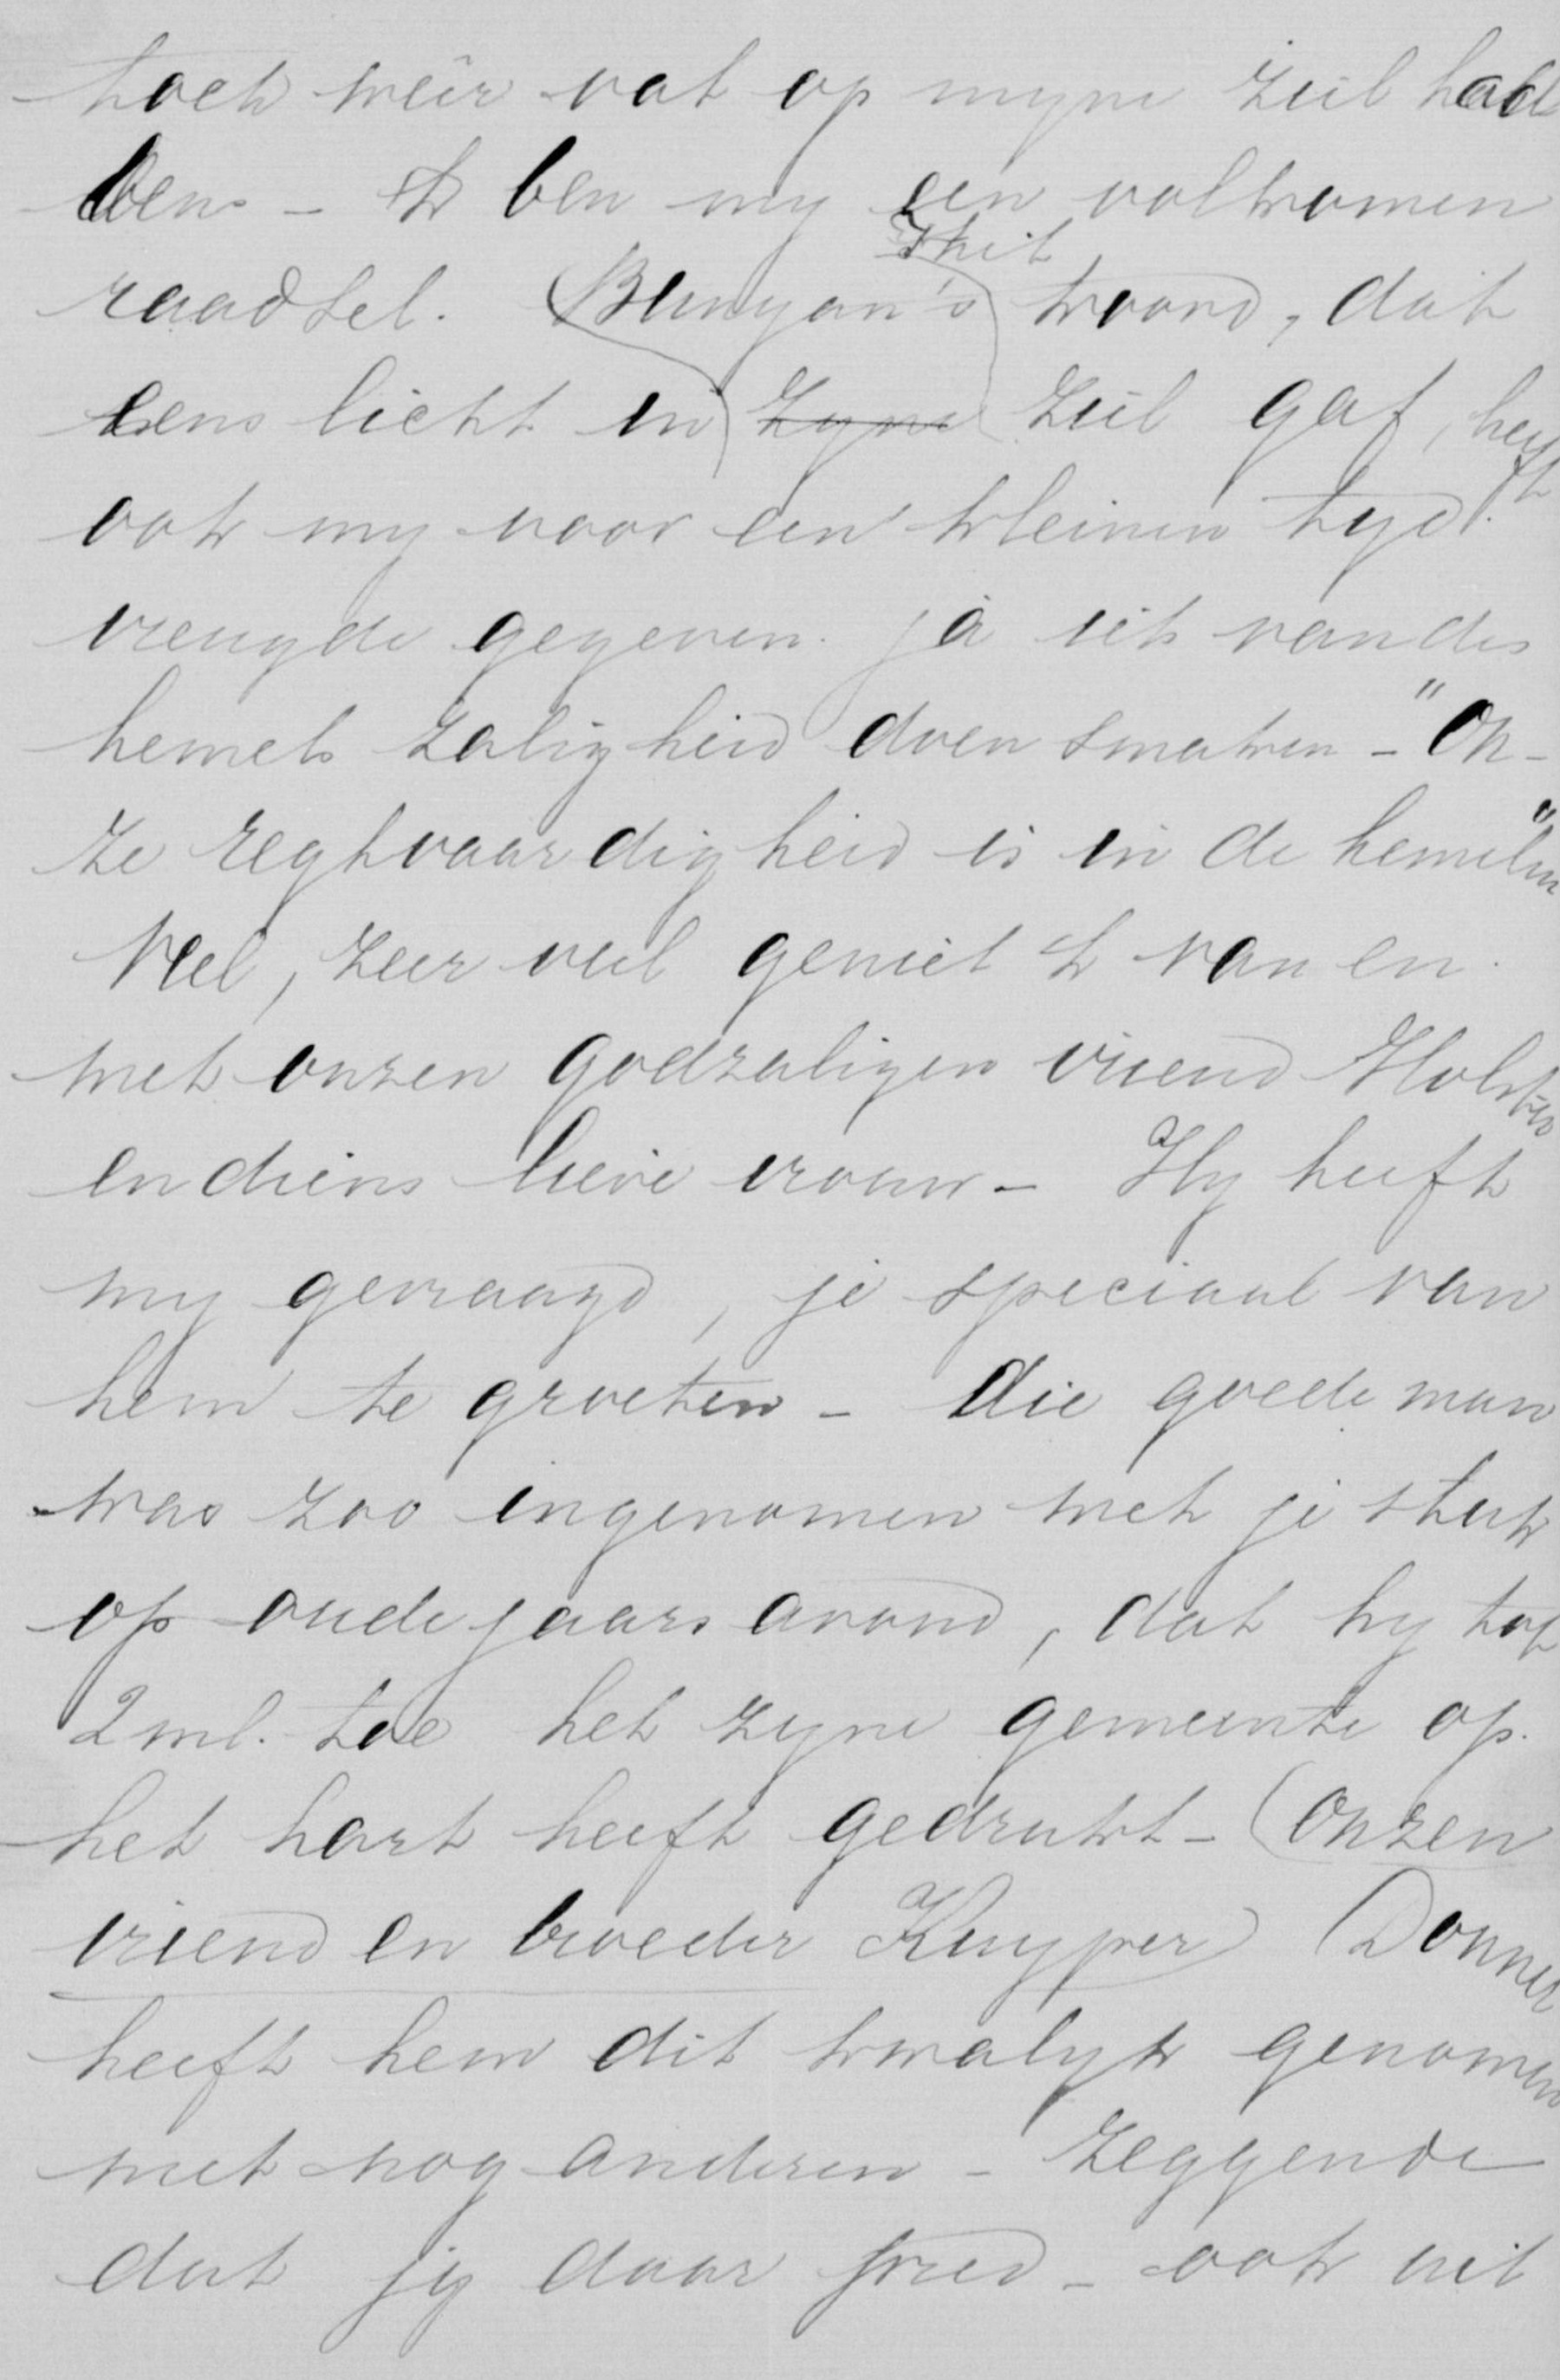 toch weêr vat op myne ziel had
den - Ik ben my een volkomen
raadsel. Bunyan's woord, dat
eens licht in zyne ziel gaf, heeft
ook my voor een kleinen tyd
vreugde gegeven. ja iets van des
hemels zaligheid doen smaken - "On-
ze regtvaardigheid is in de hemelen"
Veel, zeer veel geniet ik van en
met onzen godzaligen vriend
en diens lieve vrouw - Hy heeft
my gevraagd, je speciaal van
hem te groeten - die goede man
was zoo ingenomen met je stuk
op oudejaars avond, dat hy tot
2 ml. toe het zyne gemeente op
het hart heeft gedrukt - (Onzen
vriend en broeder Kuyper) (Donner
heeft hem dit kwalyk genomen
met nog anderen - zeggende
dat jy daar - ook uit